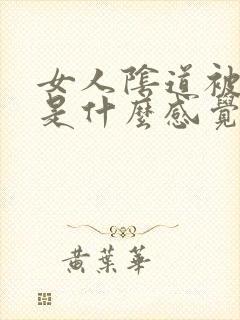 女人陰道被
是什麼感覺
黃葉華